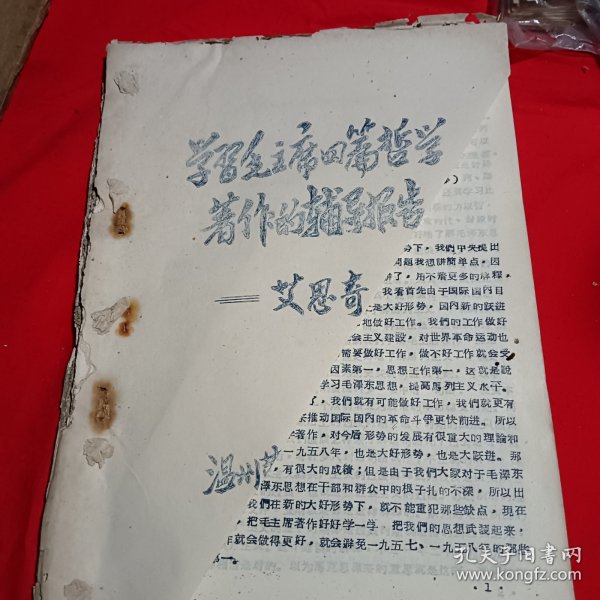 学習毛主席四篇哲学
著作的辅导报告
艾思奇
温州
势下,我們中央提出
問題我想講簡单点,因
了,用不着更多的解释,
我看首先由于国际国内目
是大好形势,国内新的跃进
地做好工作。我們的工作做好
会主义建設,对世界革命运动也
需要做好工作,做不好工作就会受
因素第一,思想工作第一,这就是說
学习毛澤东思想,提高馬列主义水平。
了,我們就有可能做好工作,我們就更有
推动国际国内的革命斗爭更快前进。所以
学著作,对今后形势的发展有很重大的理論和
一九五八年,也是大好形势,也是大跃进。那
有很大的成績;但是由于我們大家对于毛澤东
澤东思想在干部和群众中的根子扎的不深,所以出
我們在新的大好形势下,就不能重犯那些缺点,現在
把毛主席著作好好学一学,把我們的思想武装起来,
就会做得更好,就会避免一九五七,一九五八年的那些
·1·
孔夫子旧书网
www.kongfz.com